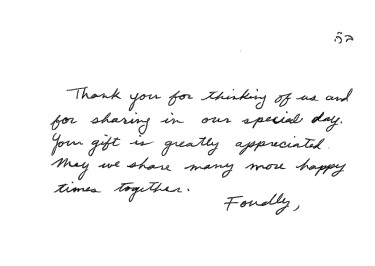 בּה
Thank you for thinking of us and
for sharing in our special day.
Your gift is greatly appreciated.
May we share many more happy
times together.
Fondly,